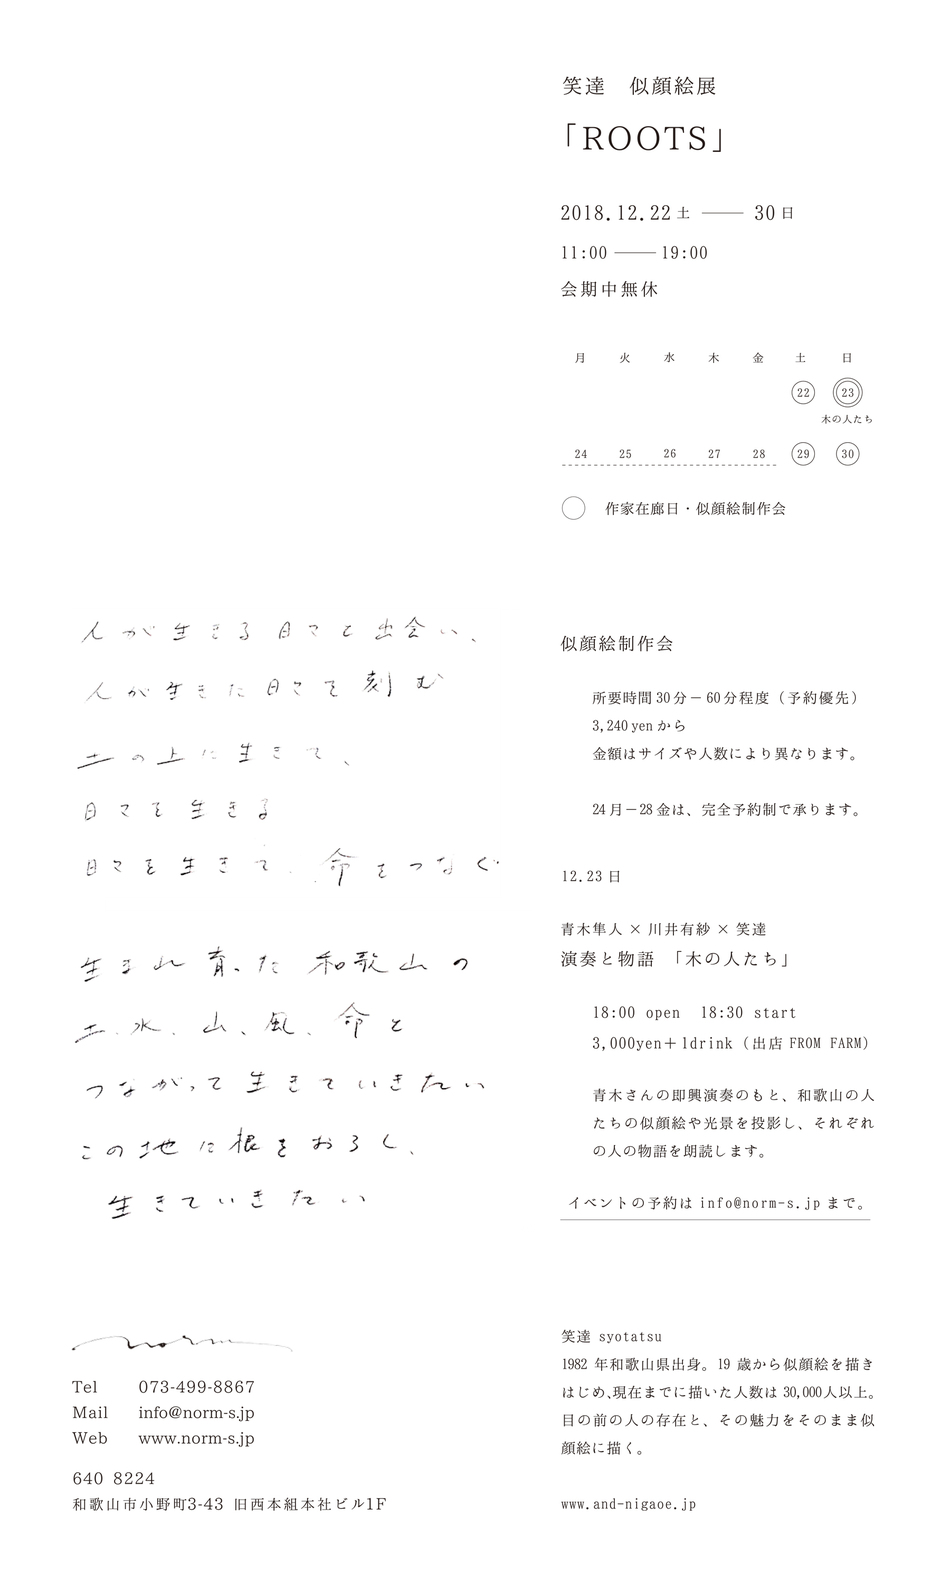 笑達　似顔絵展
「ROOTS」
2018.12.22 土 —— 30 日
11:00 —— 19:00
会期中無休
月 火 水 木 金 土 日
22 23
木の人たち
24 25 26 27 28 29 30
作家在廊日・似顔絵制作会
人が生きる日々と出会い、
人が生きた日々を刻む
土の上に生きて、
日々を生きる
日々を生きて、命をつなぐ
生まれ育った和歌山の
土、水、山、風、命と
つながって生きていきたい
この地に根をおろし、
生きていきたい
似顔絵制作会
所要時間 30 分 − 60 分程度（予約優先）
3,240 yen から
金額はサイズや人数により異なります。
24 月 − 28 金は、完全予約制で承ります。
12.23 日
青木隼人 × 川井有紗 × 笑達
演奏と物語　「木の人たち」
18:00 open　18:30 start
3,000yen＋1drink（出店 FROM FARM）
青木さんの即興演奏のもと、和歌山の人
たちの似顔絵や光景を投影し、それぞれ
の人の物語を朗読します。
イベントの予約は info@norm-s.jp まで。
norm
Tel 073-499-8867
Mail info@norm-s.jp
Web www.norm-s.jp
640 8224
和歌山市小野町3-43 旧西本組本社ビル1F
笑達 syotatsu
1982 年和歌山県出身。19 歳から似顔絵を描き
はじめ、現在までに描いた人数は 30,000人以上。
目の前の人の存在と、その魅力をそのまま似
顔絵に描く。
www.and-nigaoe.jp